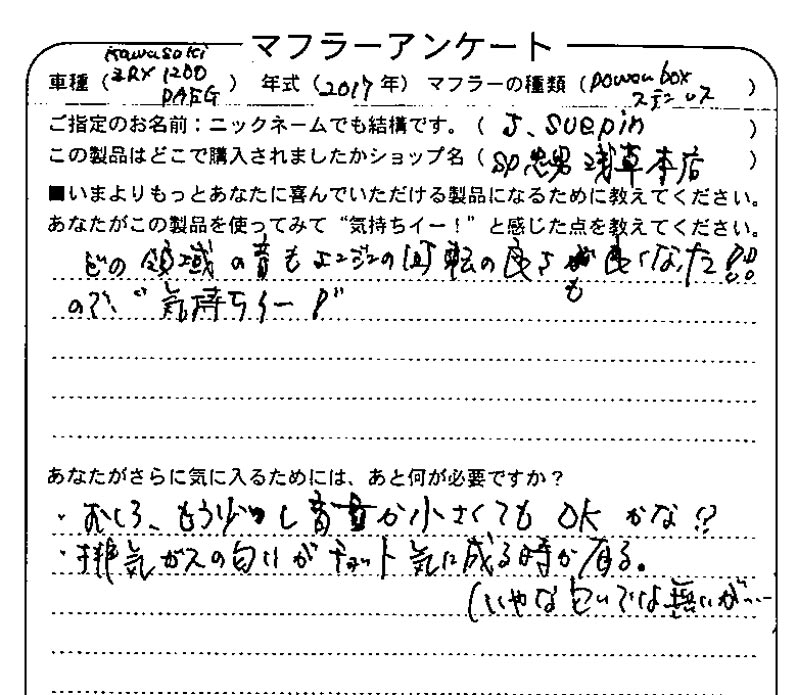 マフラーアンケート
車種（Kawasaki ZRX 1200 DAEG） 年式（2017年） マフラーの種類（power box ステンレス）
ご指定のお名前：ニックネームでも結構です。（ J. suepin ）
この製品はどこで購入されましたかショップ名（ SP忠男 浅草本店 ）
■いまよりもっとあなたに喜んでいただける製品になるために教えてください。
あなたがこの製品を使ってみて“気持ちイー！”と感じた点を教えてください。
どの領域の音もエンジンの回転の良さも良くなった!!
ので、“気持ちイー！”
あなたがさらに気に入るためには、あと何が必要ですか？
・むしろ、もう少し音量が小さくてもOKかな!?
・排気ガスの匂いがチョット気に成る時が有る。
（いやな匂いでは無いが…